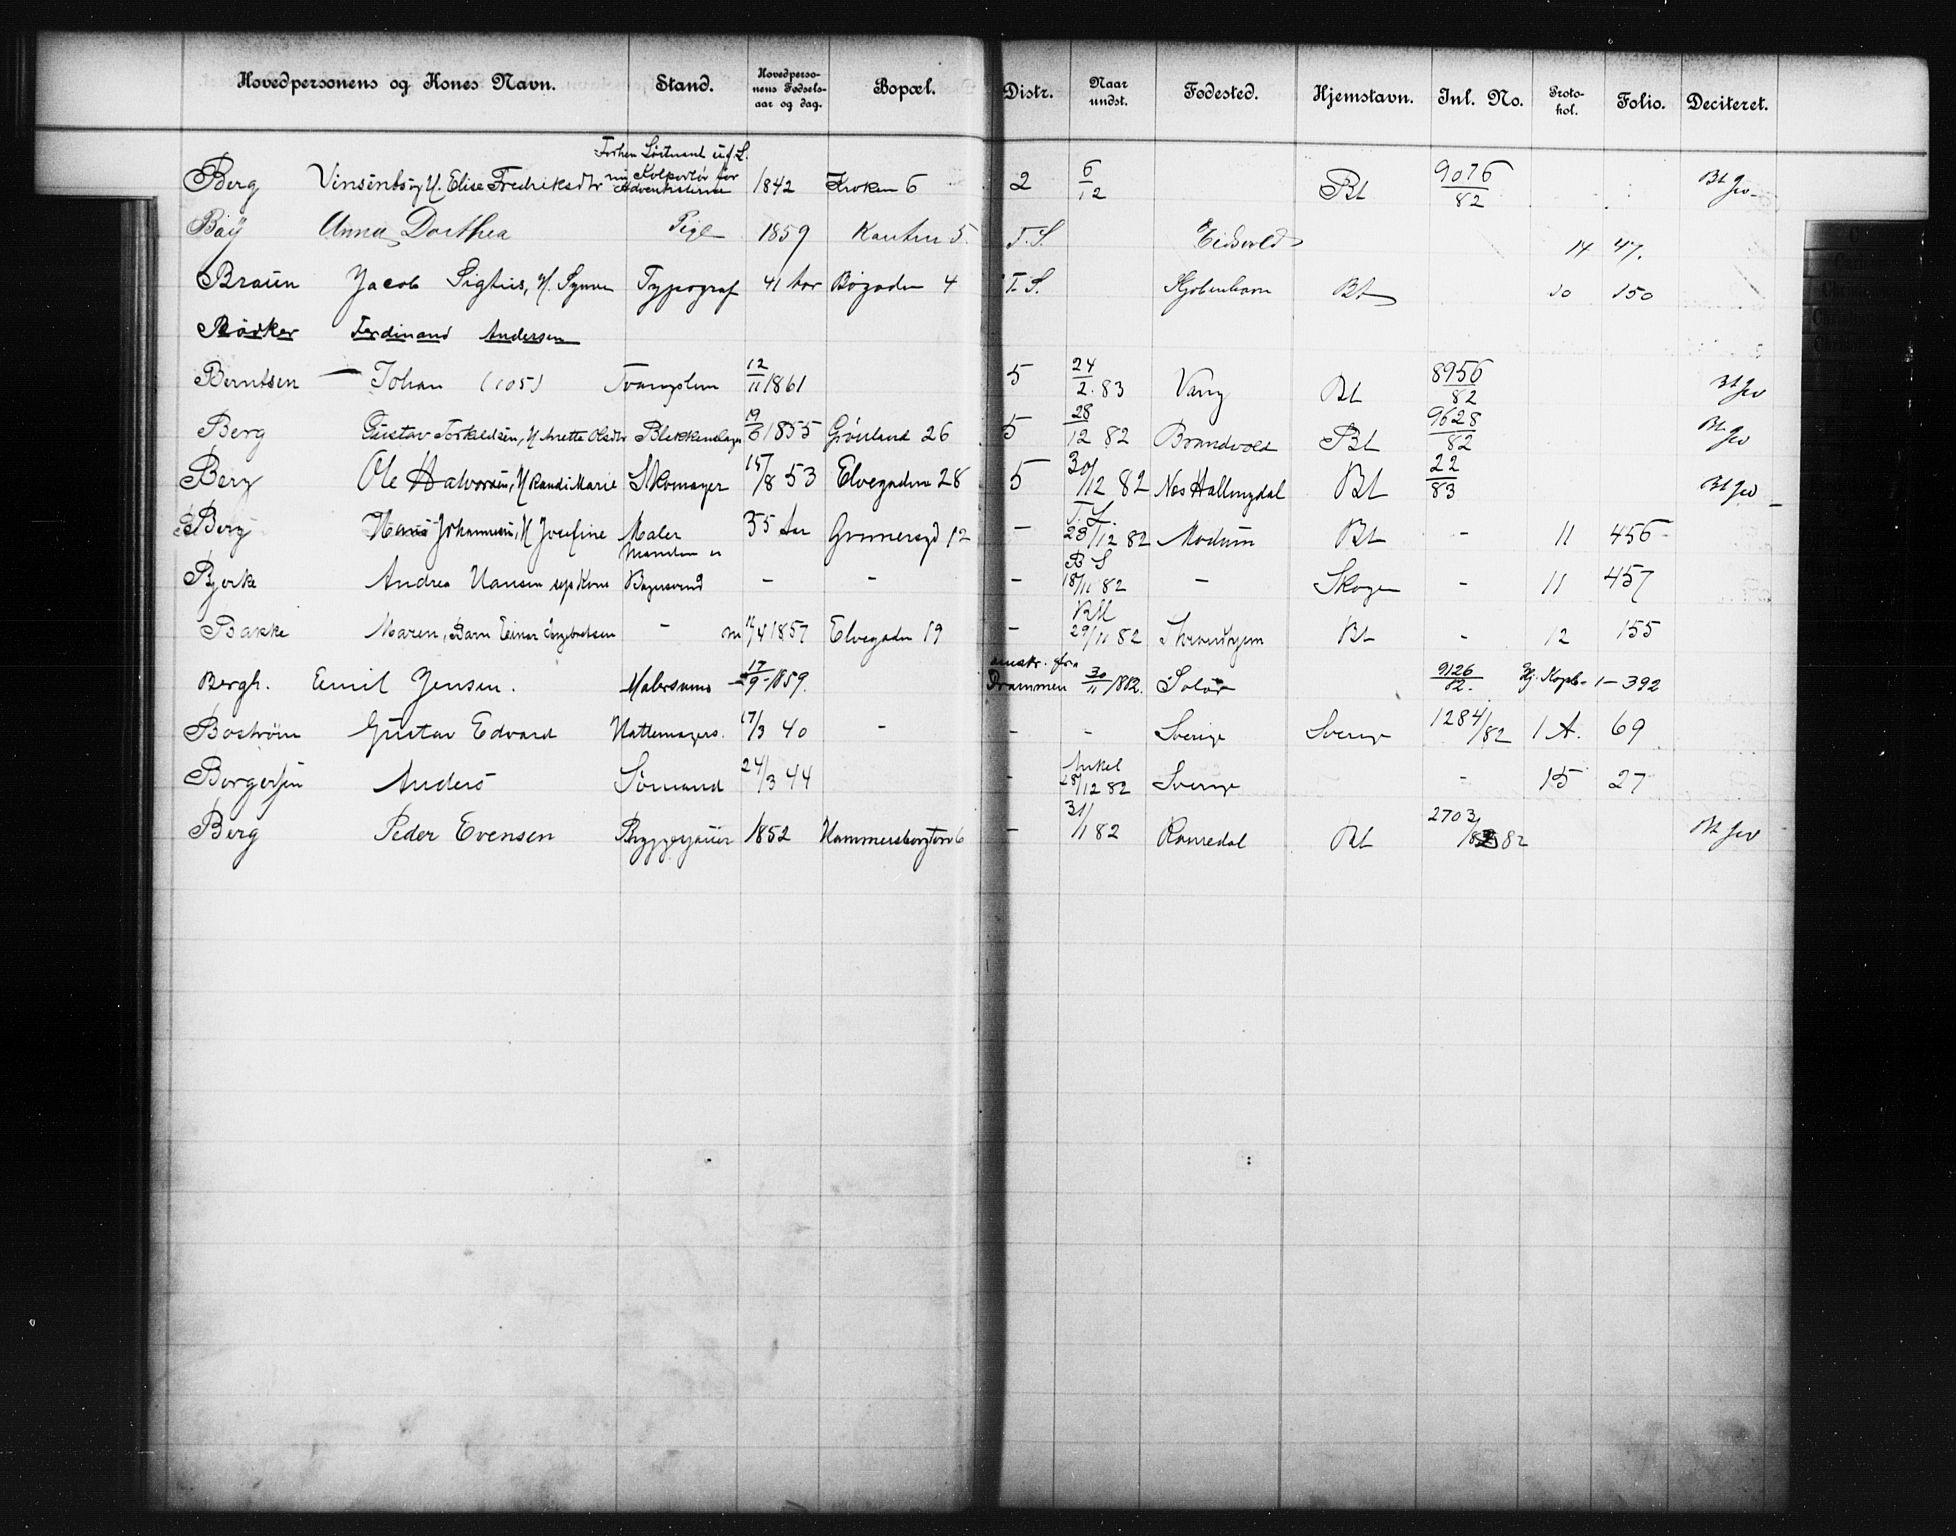 Hovedpersonens og Kones Navn. Stand. Hovedperso-nens Fødsels-aar og dag. Bopæl. Distr. Naar undst. Fødested. Hjemstavn. Inl. No. Proto-kol. Folio. Deciteret.
Forhen Løitnant
Berg Elise Fredriksdtr nu Kolportør for Adventisterne 1842 Kroken 6 2 6/12 Bt 9076/82 Bt
Anna Dorthea Pige 1859 5 T. S. Eidsvold 14 47.
Braun Jacob Typograf 41 Aar Bøgaden 4 T. S. Kjøbenhavn Bt 10 150
Bødker Ferdinand Andersen
Berntsen — Johan (105) 12/11 1861 5 24/2 83 Vang Bt 8956/82 Bt
Berg Gustav Torkildsen, H Anette Olsdtr Blikkenslager 19/6 1855 Grønland 26 5 28/12 82 Brandvold Bt 9628/82 Bt
Berg Ole Halvorsen, H Randi Marie Skomager 15/8 53 Elvegaden 28 5 30/12 82 Nes Hallingdal Bt 22/83 Bt
T. S.
Berg Hans Johannesen, H Josefine Maler 35 Aar 12 - 28/12 82 Modum Bt - 11 456
Manden er
B S
Bjerke Andrea Hansen sep Kone Bagersvend - - - 18/11 82 - Skoger - 11 457
Bakke Maren, Barn Einar Ingebretsen - 4 1857 Elvegaden 19 - 29/11 82 Bt - 12 155
Bergh. Emil Jensen. Malersvend 17/9 1859. Drammen 30/11 1882. Solør 9126/82. 1 - 392
Boström Gustav Edvard Hattemagers. 17/3 40 - - - Sverige Sverige 1284/82 1 A. 69
Borgersen Anders Sømand 24/3 44 - 28/12 82 Sverige - 15 27
Berg Peder Evensen Bryggerjauer 1852 Hammersborgtorv 6 - 31/1 82 Romsdal Bt 2703/82 Bt